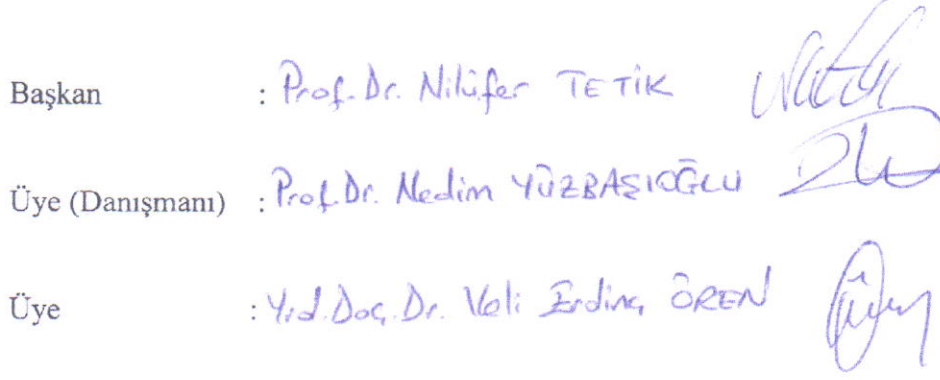 Başkan : Prof. Dr. Nilüfer TETİK
Üye (Danışmanı) : Prof. Dr. Nedim YÜZBAŞIOĞLU
Üye : Yrd. Doç. Dr. Veli Erdinç ÖREN